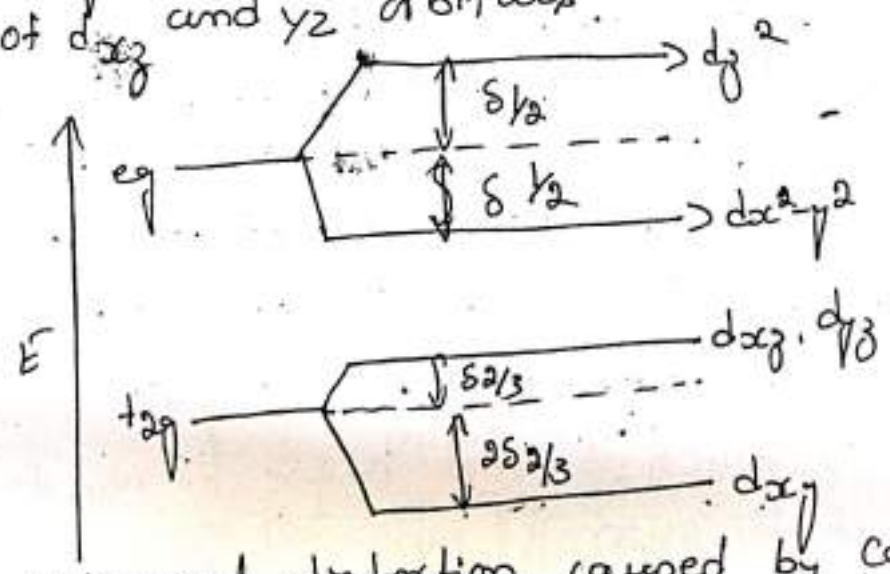 of dxz and yz
dz²
δ1/2
eg
δ 1/2
dx²-y²
E
dxz, dyz
δ2/3
t2g
2δ2/3
dxy
distortion caused by